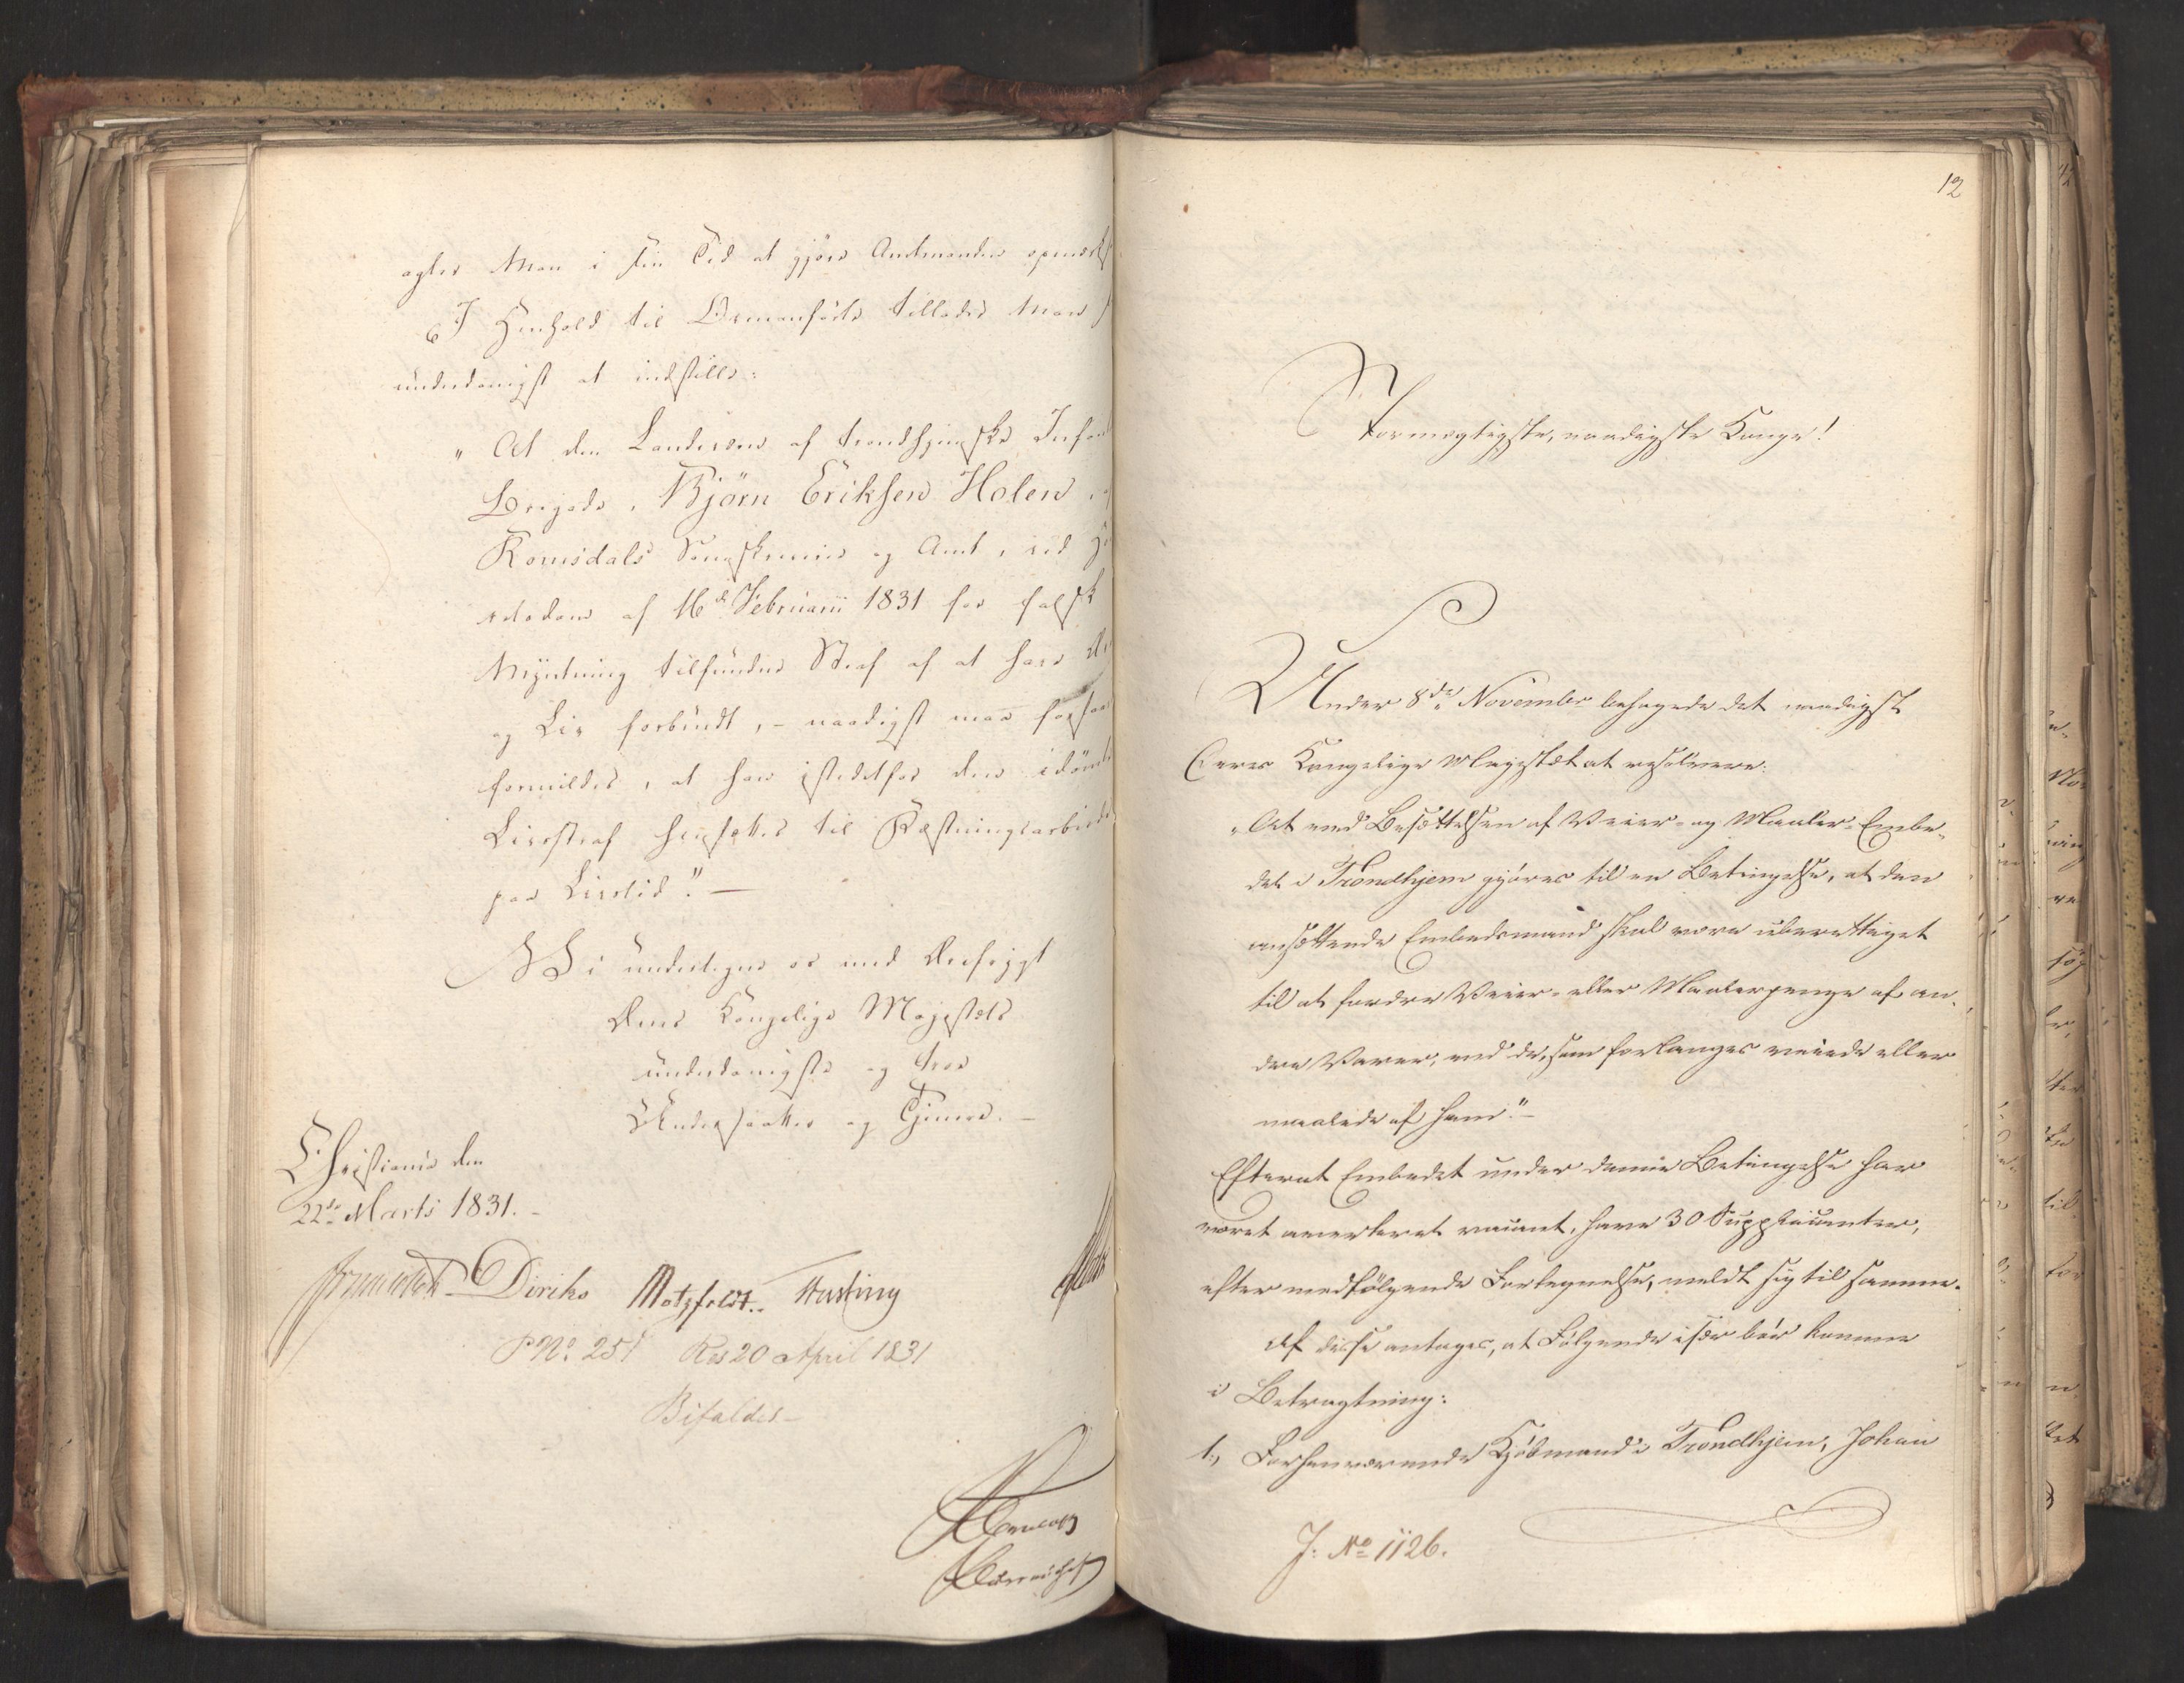 agter Man i sin Tid at gjøre Amtmanden opmærks
I Henhold til Ovenanførte tillades Man
underdanigst at indstille:
"At den Landeværn af trondhjemske Infant
Brigade, Björn Eriksen Holen,
Romsdals Sorenskriveri og Amt, ved
retsdom af 16d Februarii 1831 for falsk
Myntning tilfunden Straf af at have
og Liv forbrudt, - naadigst maa
formildes, at han istedetfor den idømte
Livsstraf hensættes til Fæstningsarbeide
paa Livstid." —
Vi undertegne os med Ærefrygt
Deres Kongelige Majestæts
underdanigste og troe
Undersaatter og Tjenere. —
Christiania den
22de Marts 1831. -
Diriks Motzfeldt. Vustiny
P No. 251 Res 20 April 1831
Bifaldes -
12
Stormægtigste, naadigste Konge!
Under 8de November behagede det naadigst
Deres Kongelige Majestæt at resolvere:
"At ved Besættelsen af Veier- og Maaler-Embe-
det i Trondhjem gjøres til en Betingelse, at den
ansættende Embedsmand skal være uberettiget
til at fordre Veier- eller Maalerpenge af an-
dre Varer, end de, som forlanges veiede eller
maalede af ham." -
Efterat Embedet under denne Betingelse har
været averteret vacant, have 30 Supplicanter,
efter medfølgende Fortegnelse, meldt sig til samme.
Af disse antages, at Følgende især bør komme
i Betragtning:
1., Forhenværende Kjøbmand i Trondhjem, Johan
J: No 1126.